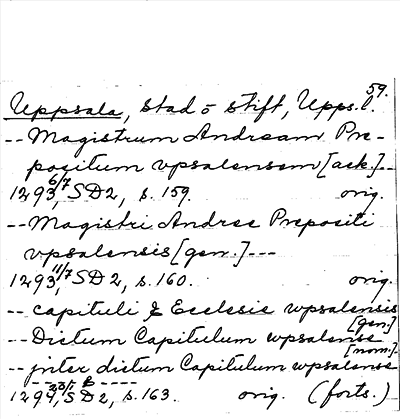 59.
Uppsala, stad o stift, Upps. l.
-- Magistrum Andream Pre-
positum vpsalensem [ack.]--
1293 6/7, SD2, s. 159. orig.
-- Magistri Andree Prepositi
vpsalensis [gen.] ---
1293 11/7, SD2, s. 160. orig.
-- capituli & Ecclesie vpsalensis
[gen.]
-- Dictum Capitulum wpsalense
[nom.]
-- jnter dictum Capitulum wpsalense
-- -- ----
SD2, s. 163. orig. (forts.)